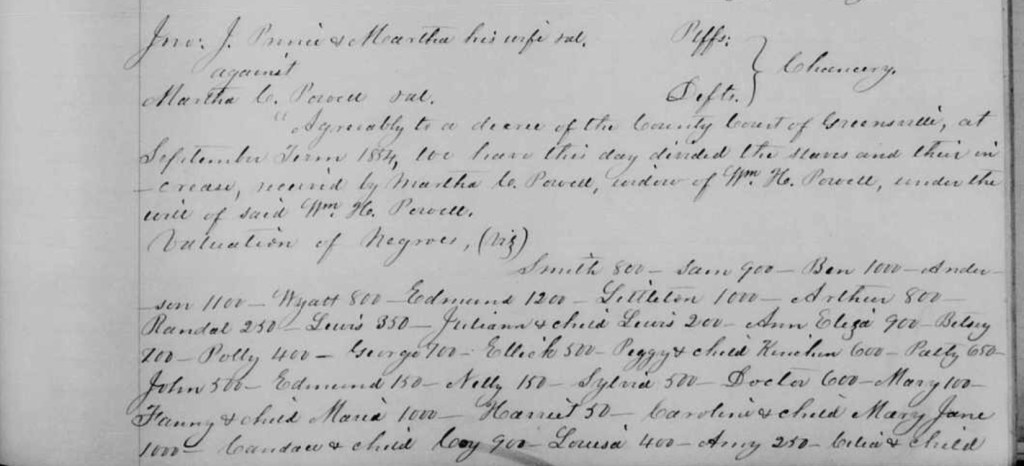 Jno: J. Prince & Martha his wife &al. Plffs:
against } Chancery.
Martha C. Powell &al. Defts.
"Agreeably to a decree of the County Court of Greensville, at
September Term 1854, we have this day divided the slaves and their in
-crease, received by Martha C. Powell, widow of Wm. H. Powell, under the
will of said Wm. H. Powell.
Valuation of Negroes, (viz)
Smith 800 — Sam 900 — Ben 1000 — Ander-
-son 1100 — Wyatt 800 — Edmund 1200 — Littleton 1000 — Arthur 800 —
Randal 250 — Lewis 350 — Juliann & child Lewis 200 — Ann Eliza 900 — Betsey
700 — Polly 400 — George 700 — Ellick 500 — Peggy & child Kinchin 600 — Patty 650 —
John 500 — Edmund 150 — Nelly 150 — Sylvia 500 — Doctor 600 — Mary 100 —
Fanny & child Maria 1000 — Harriet 50 — Caroline & child Mary Jane
1000 — Candace & child 900 — Louisa 400 — Amy 250 — Celia & child